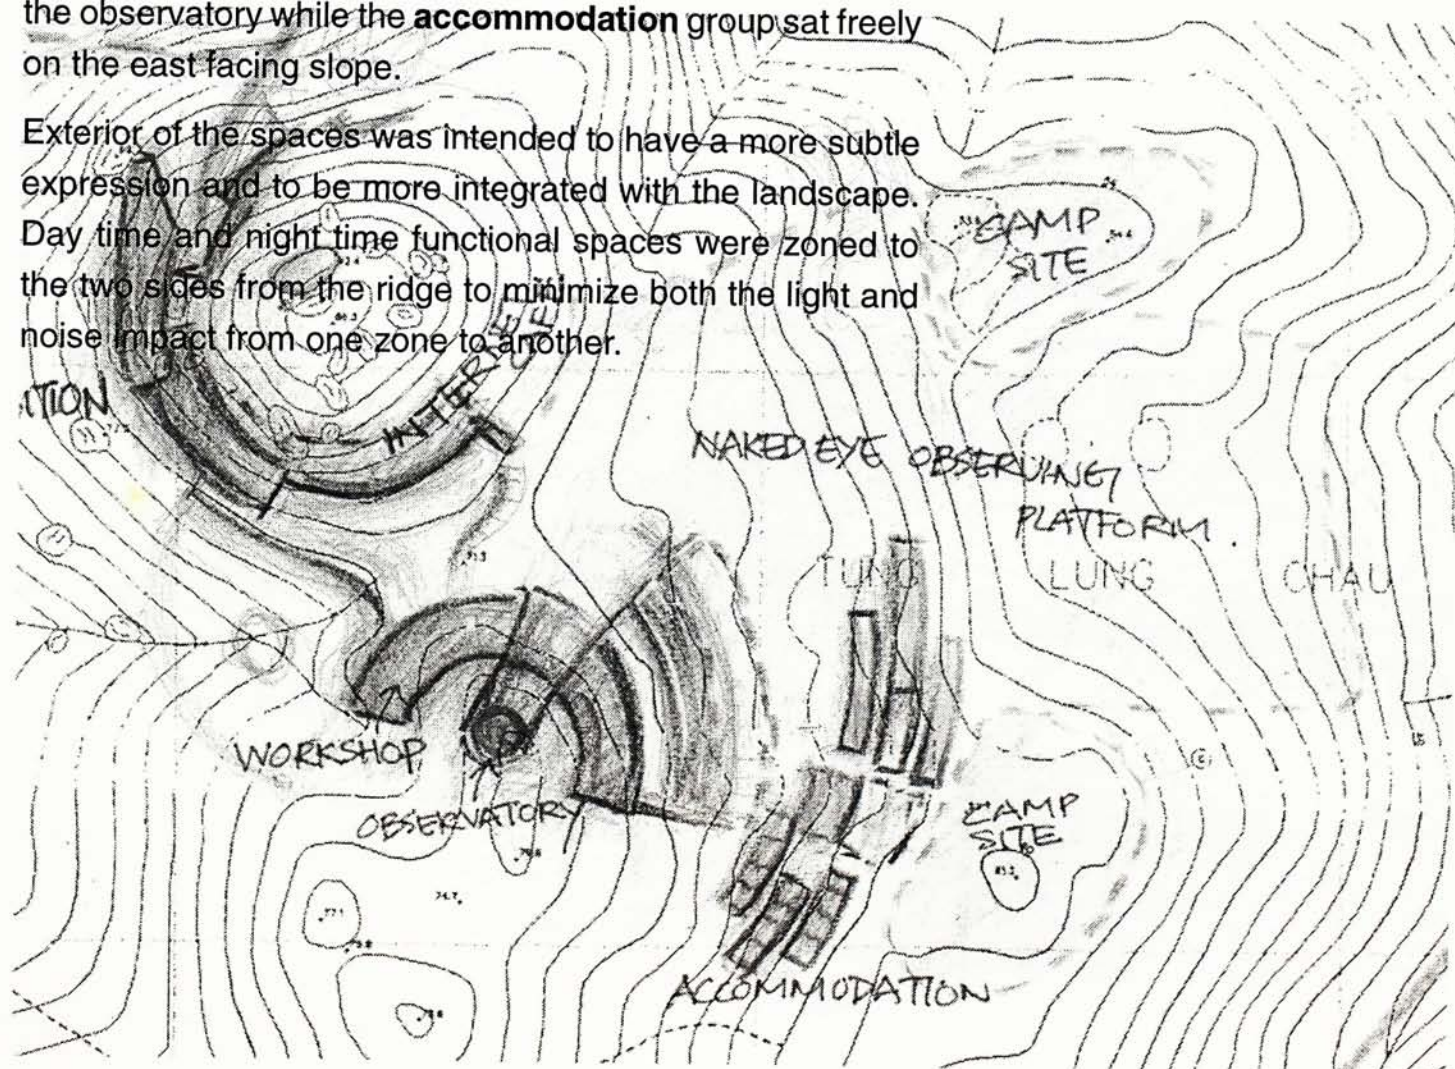 the observatory while the accommodation group sat freely
on the east facing slope.
Exterior of the spaces was intended to have a more subtle
expression and to be more integrated with the landscape.
Day time and night time functional spaces were zoned to
the two sides from the ridge to minimize both the light and
noise impact from one zone to another.
CAMP
SITE
ITION
NAKED EYE OBSERVING
PLATFORM.
TUNG LUNG CHAU
WORKSHOP
OBSERVATORY
CAMP
SITE
ACCOMMODATION